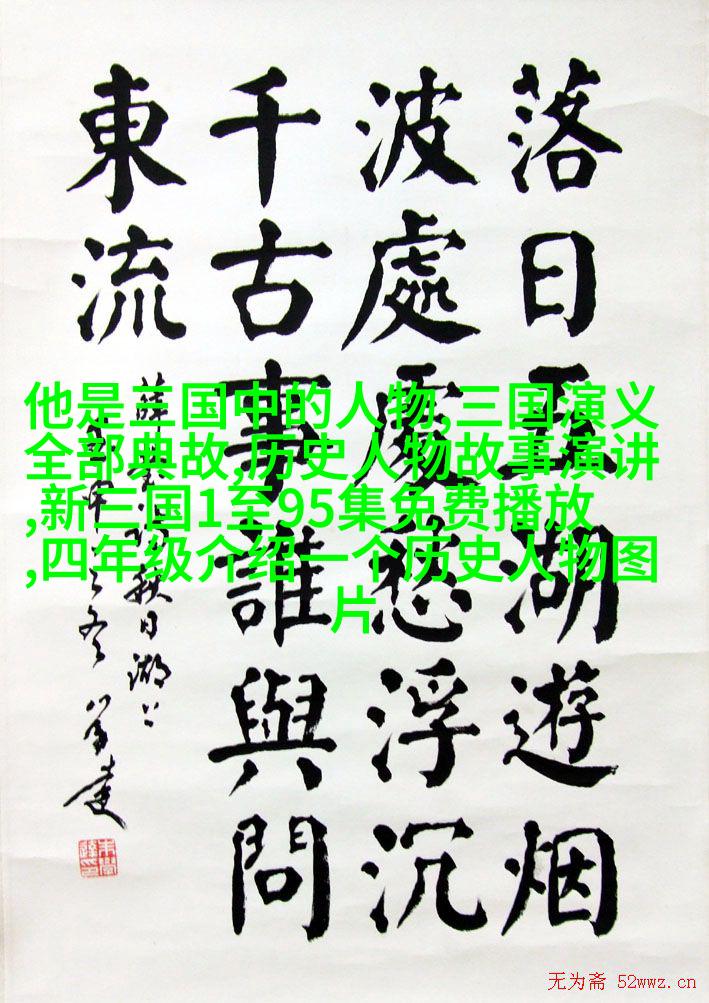 落日五湖遊烟
波處處愁浮沉
千古事誰與問
東流
薛瑩秋日湖上
他是三国中的人物,三国演义
全部典故,历史人物故事演讲
,新三国1至95集免费播放
,四年级介绍一个历史人物图
片
无为斋 52wwz.cn